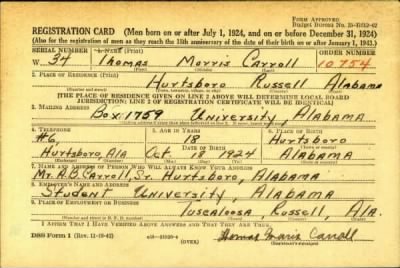 FORM APPROVED
REGISTRATION CARD (Men born on or after July 1, 1924, and on or before December 31, 1924)
(Also for the registration of men as they reach the 18th anniversary of the date of their birth on or after January 1, 1943.)
SERIAL NUMBER 1. NAME (Print) ORDER NUMBER
W 34 Thomas Morris Carroll 10754
(First) (Middle) (Last)
2. PLACE OF RESIDENCE (Print)
Hurtsboro Russell Alabama
[THE PLACE OF RESIDENCE GIVEN ON LINE 2 ABOVE WILL DETERMINE LOCAL BOARD
JURISDICTION; LINE 2 OF REGISTRATION CERTIFICATE WILL BE IDENTICAL]
3. MAILING ADDRESS
Box 1759 University, Alabama
4. TELEPHONE 5. AGE IN YEARS 6. PLACE OF BIRTH
#6 18 Hurtsboro
DATE OF BIRTH
Hurtsboro Ala Oct 1924 Alabama
7. NAME AND ADDRESS OF PERSON WHO WILL ALWAYS KNOW YOUR ADDRESS
Mr. A.B. Carroll, Sr. Hurtsboro, Alabama
8. EMPLOYER'S NAME AND ADDRESS
Student University, Alabama
9. PLACE OF EMPLOYMENT OR BUSINESS
Tuscaloosa, Russell, Ala.
I AFFIRM THAT I HAVE VERIFIED ABOVE ANSWERS AND THAT THEY ARE TRUE.
DSS Form 1 (Rev. 11-16-42) (OVER) Thomas Morris Carroll